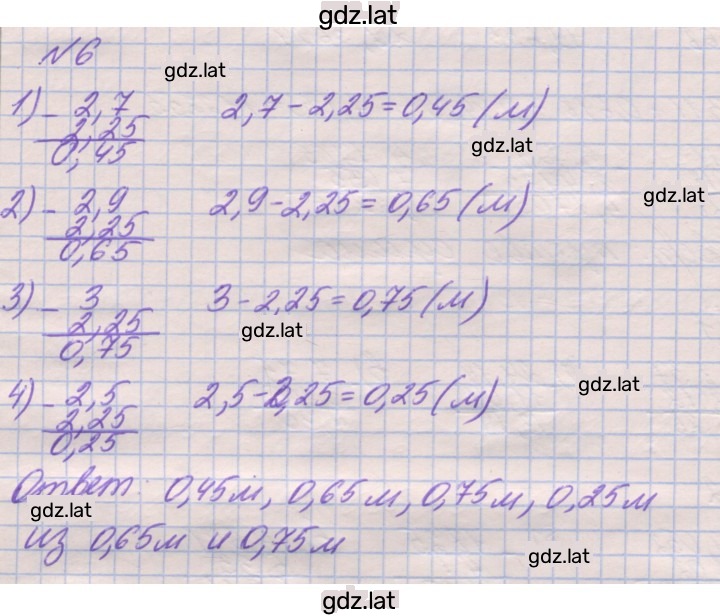 gdz.lat
№6
gdz.lat
1) - 2,7 2,7 - 2,25 = 0,45 (м)
2,25
0,45
gdz.lat
gdz.lat
2) - 2,9 2,9 - 2,25 = 0,65 (м)
2,25
0,65
3) - 3 3 - 2,25 = 0,75 (м)
2,25
gdz.lat
0,75
gdz.lat
4) - 2,5 2,5 - 2,25 = 0,25 (м)
2,25
0,25
Ответ 0,45м, 0,65м, 0,75м, 0,25м
gdz.lat
из 0,65м и 0,75м
gdz.lat
gdz.lat